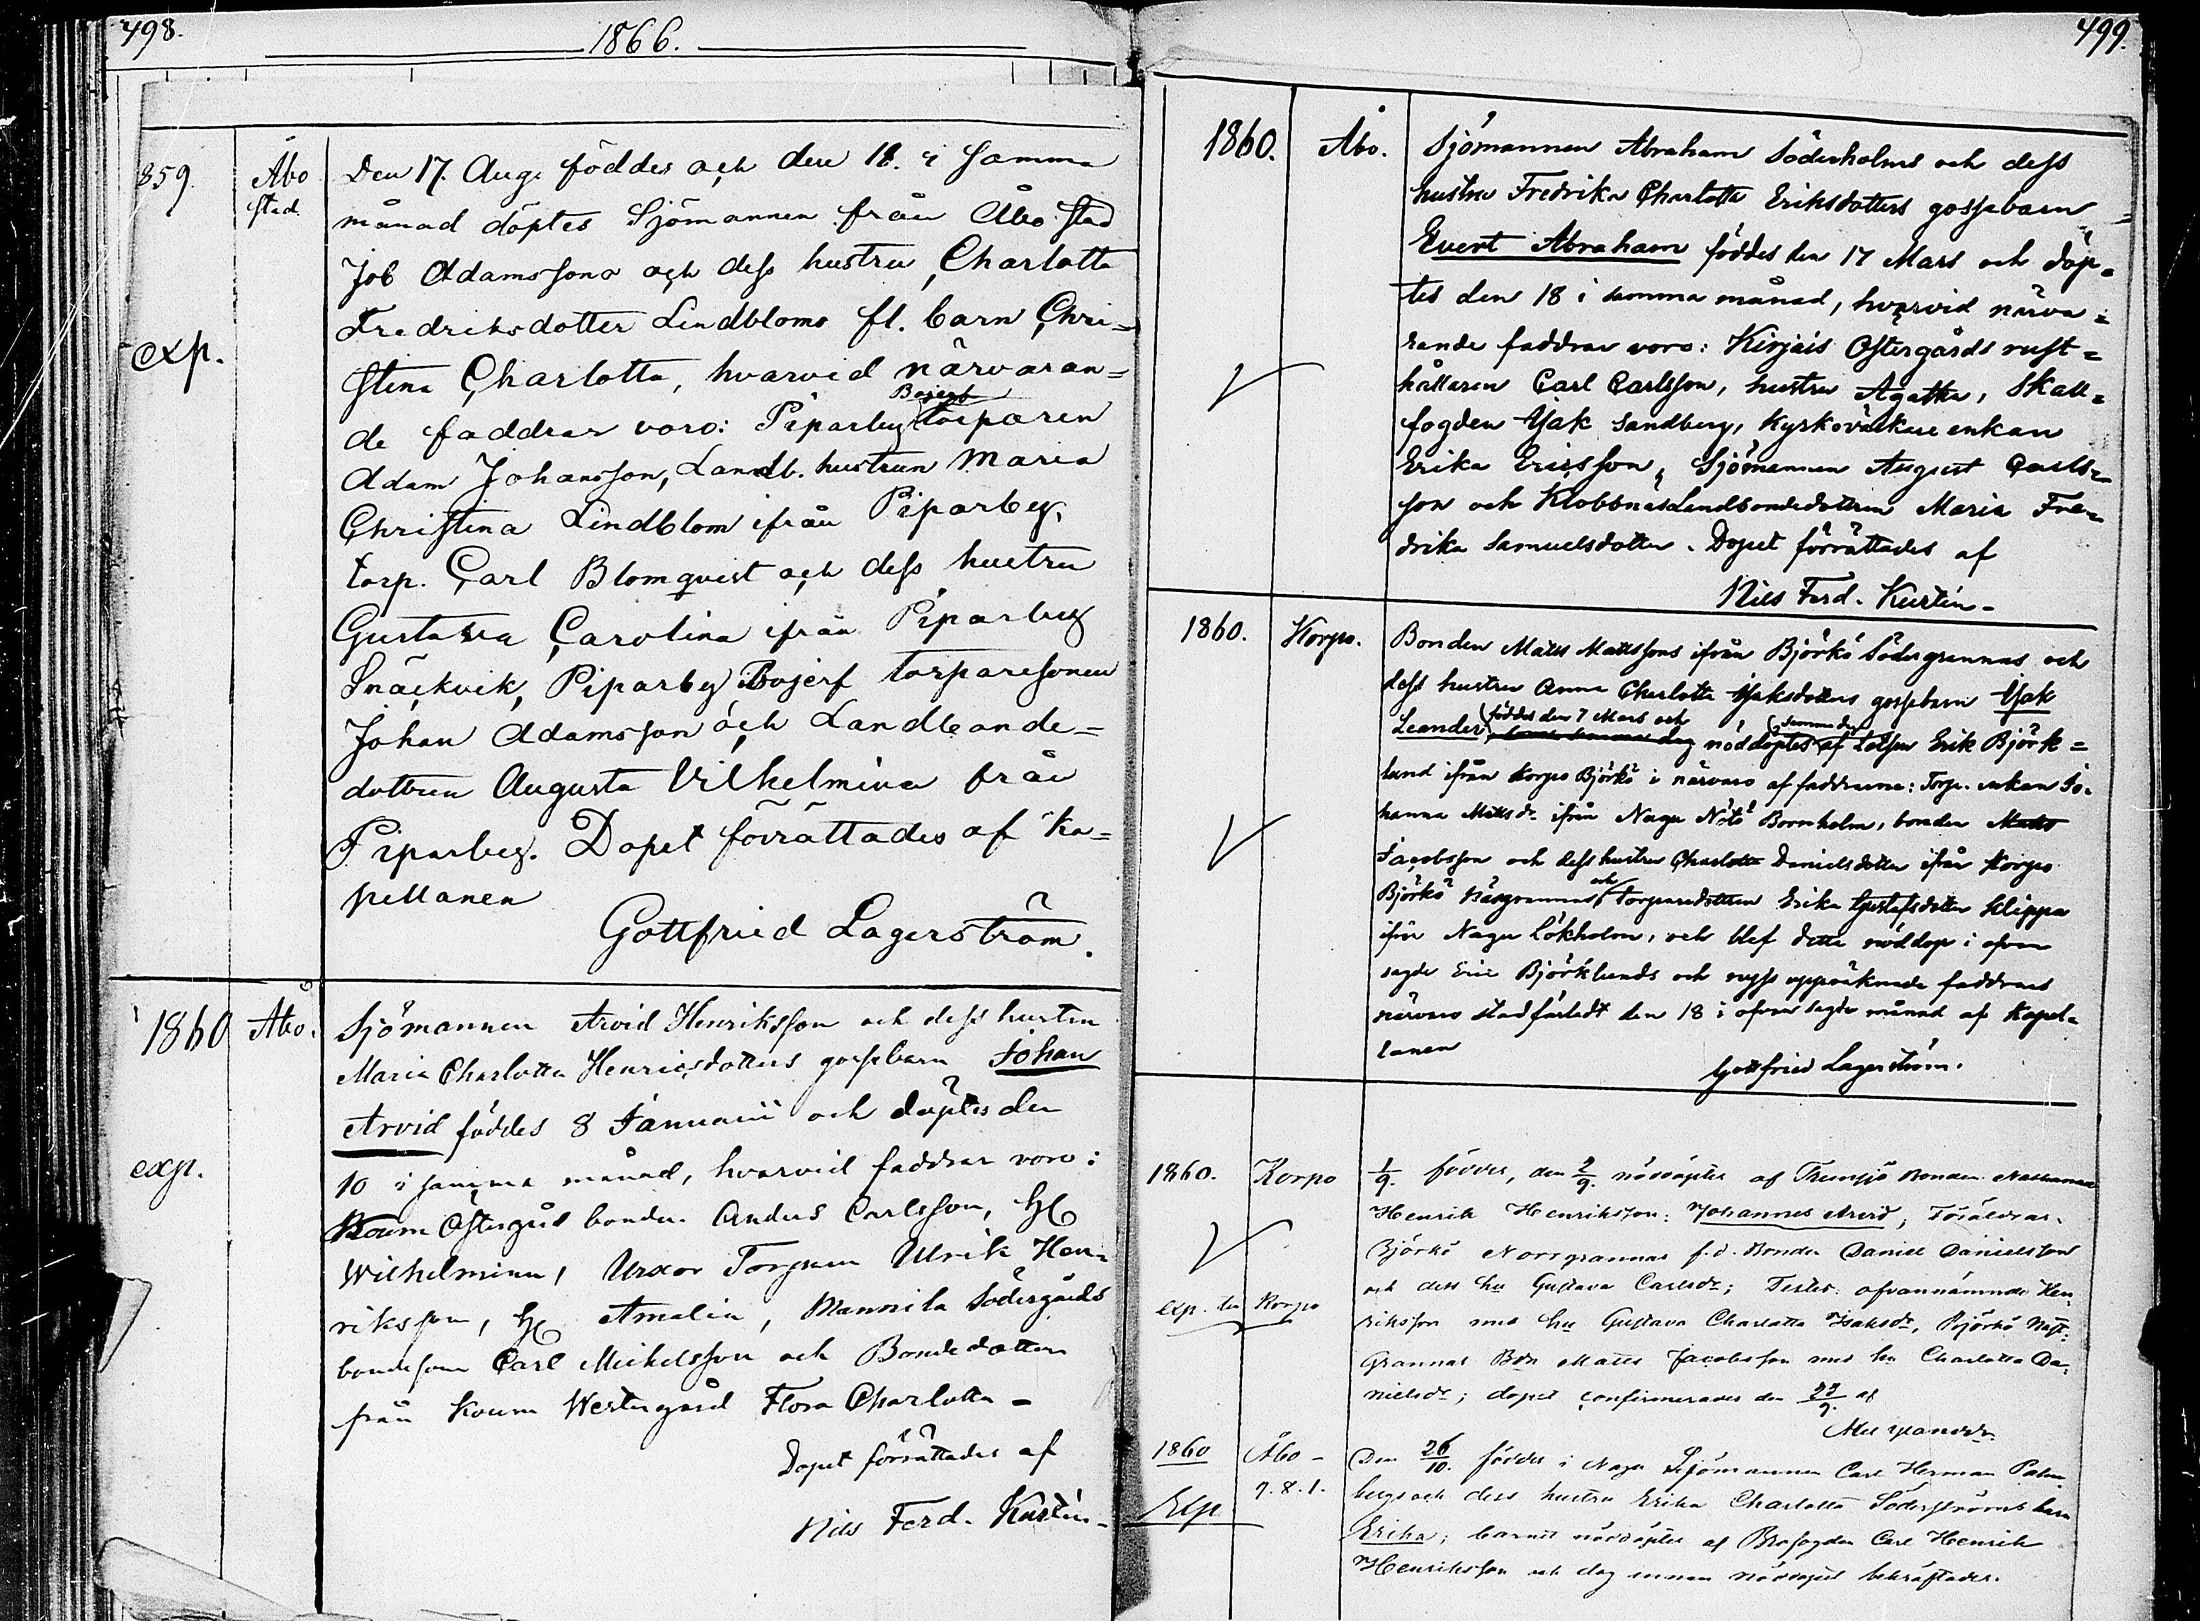 498.
1866.
859. Åbo stad.
exp.
Den 17. Aug. föddes och den 18. i samma
månad döptes Sjömannen från Åbo stad
Job Adamssons och dess hustru, Charlotta
Fredriksdotter Lindbloms fl. barn Chri=
stina Charlotta, hvarvid närvaran=
de faddrar voro: Piparby Bojerf torparen
Adam Johansson, Landb. hustrun Maria
Christina Lindblom ifrån Piparby,
torp. Carl Blomqvist och dess hustru
Gustava Carolina ifrån Piparby
Snäckvik, Piparby Bojerf torparesonen
Johan Adamsson och Landbonde=
dottren Augusta Vilhelmina från
Piparby. Dopet förrättades af Ka=
pellanen
Gottfried Lagerström.
1860 Åbo.
exp.
Sjömannen Arvid Henriksson och dess hustru
Maria Charlotta Henricsdotters gossebarn Johan
Arvid föddes 8 Januarii och döptes den
10 i samma månad, hvarvid faddrar voro:
Koum Östergårds bonden Anders Carlsson, H
Wilhelmina, Uxor Torparen Ulrik Hen=
riksson, H Amalia, Mannila Södergårds
bondeson Carl Mickelsson och Bondedottren
från Koum Westergård Flora Charlotta -
Dopet förrättades af
Nils Ferd. Kustén -
499.
1860. Åbo.
Sjömannen Abraham Söderholms och dess
hustru Fredrika Charlotta Eriksdotters gossebarn
Evert Abraham föddes den 17 Mars och döp=
tes den 18 i samma månad, hvarvid närva=
rande faddrar voro: Kirjais Östergårds rust=
hållaren Carl Carlsson, hustru Agatha, Skall=
fogden Isak Sandberg, Kyrkoväktare enkan
Erika Ericsson, Sjömannen August Carls=
son och Klobbnäs Landbondedottren Maria Fre=
drika Samuelsdotter. Dopet förrättades af
Nils Ferd. Kustén -
1860. Korpo.
Bonden Matts Mattssons ifrån Björkö Södergrannas och
dess hustru Anna Charlotta Isaksdotters gossebarn Isak
Leander föddes den 7 Mars och nöddöptes samma dag af Lotsen Erik Björk=
lund ifrån Korpo Björkö i närvaro af faddrarne: Torp. enkan Jo=
hanna Mattsdr ifrån Nagu Nötö Bornholm, bonden Matts
Jacobsson och dess hustru Charlotta Danielsdotter ifrån Korpo
Björkö Näsgrannas och torparedottren Erika Gustafsdotter Klippa
ifrån Nagu Lökholm, och blef detta nöddop i ofvan
sagde Eric Björklunds och nyss uppräknade faddrars
närvaro stadfästadt den 18 i ofvansagde månad af Kapel=
lanen
Gottfried Lagerström.
1860. Korpo
exp. till Korpo
1/9. föddes, den 2/9. nöddöptes af Bonden
Henrik Henriksson: Johannes Arvid, Föräldrar.
Björkö Norrgrannas f.d. Bonden Daniel Danielsson
och dess hu Gustava Carlsdr; Testes: ofvannämnde Hen=
riksson med hu Gustava Charlotta Isaksdr, Björkö
Grannas Bdn Matts Jacobsson med hu Charlotta Da=
nielsdr; dopet confirmerades den 23/9. af
1860 Åbo -
9.8.1.
Exp
Den 26/10. föddes i Nagu Sjömannen Carl Herman Palm=
bergs och dess hustru Erika Charlotta Söderströms barn
Erika; barnet nöddöptes af Carl Henrik
Henriksson och dog innan nöddopet bekräftades.